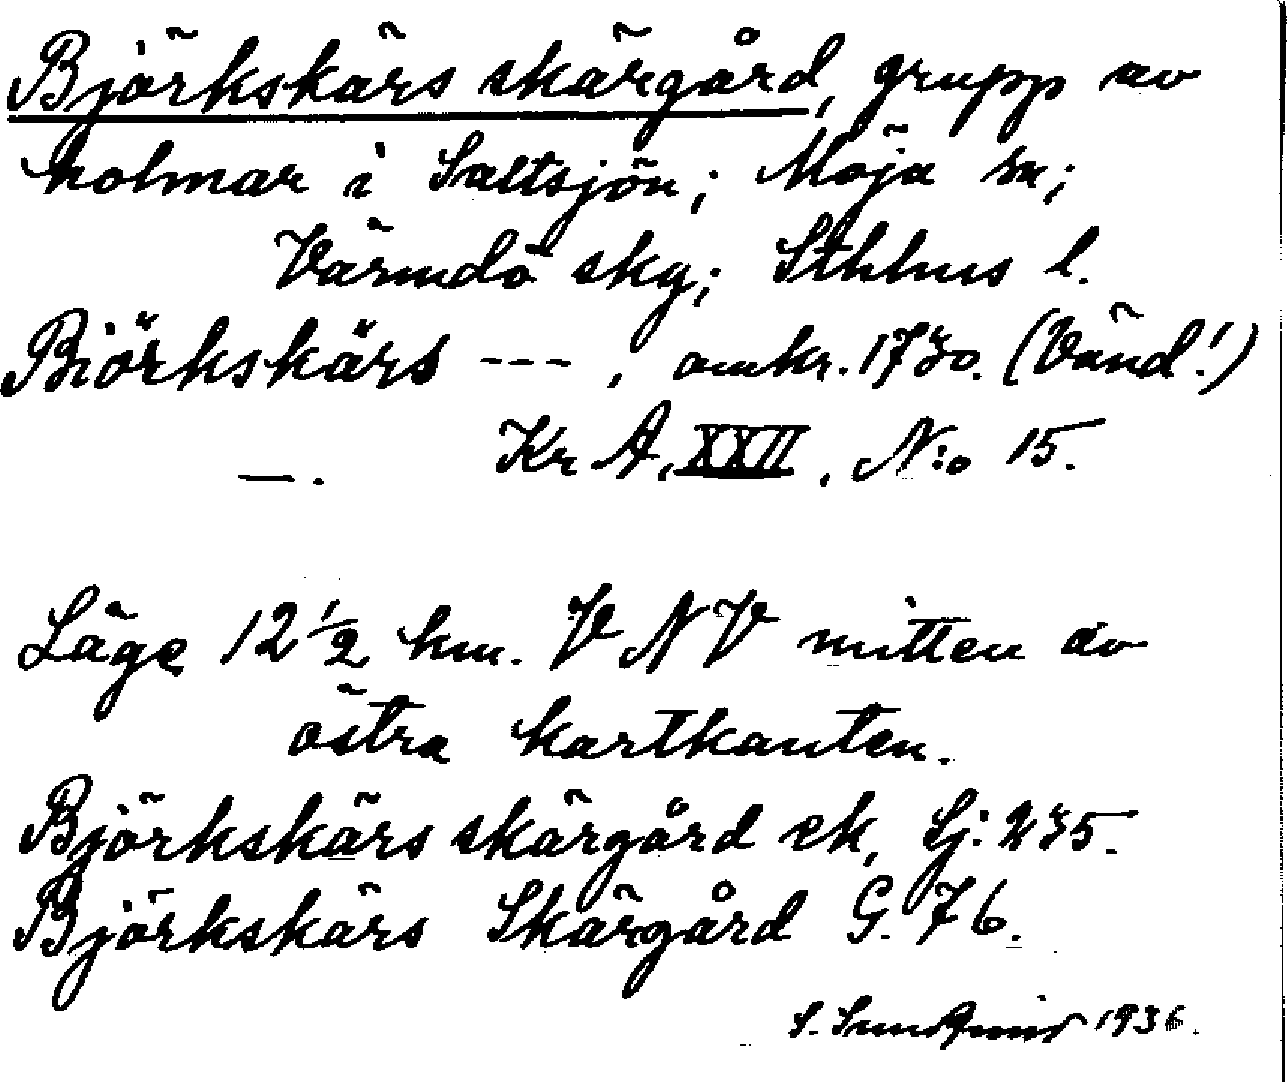 Björkskärs skärgård, grupp av
holmar i Saltsjön; Möja sn;
Värmdö skg; Sthlms l.
Biörkskärs ---, omkr. 1730. (Vänd!)
—. Kr A, XXII, N:o 15.
Läge 12 1/2 km. VNV mitten av
östra kartkanten.
Björkskärs skärgård ek, Sj: 235.
Björkskärs Skärgård G. 76.
S. 1936.